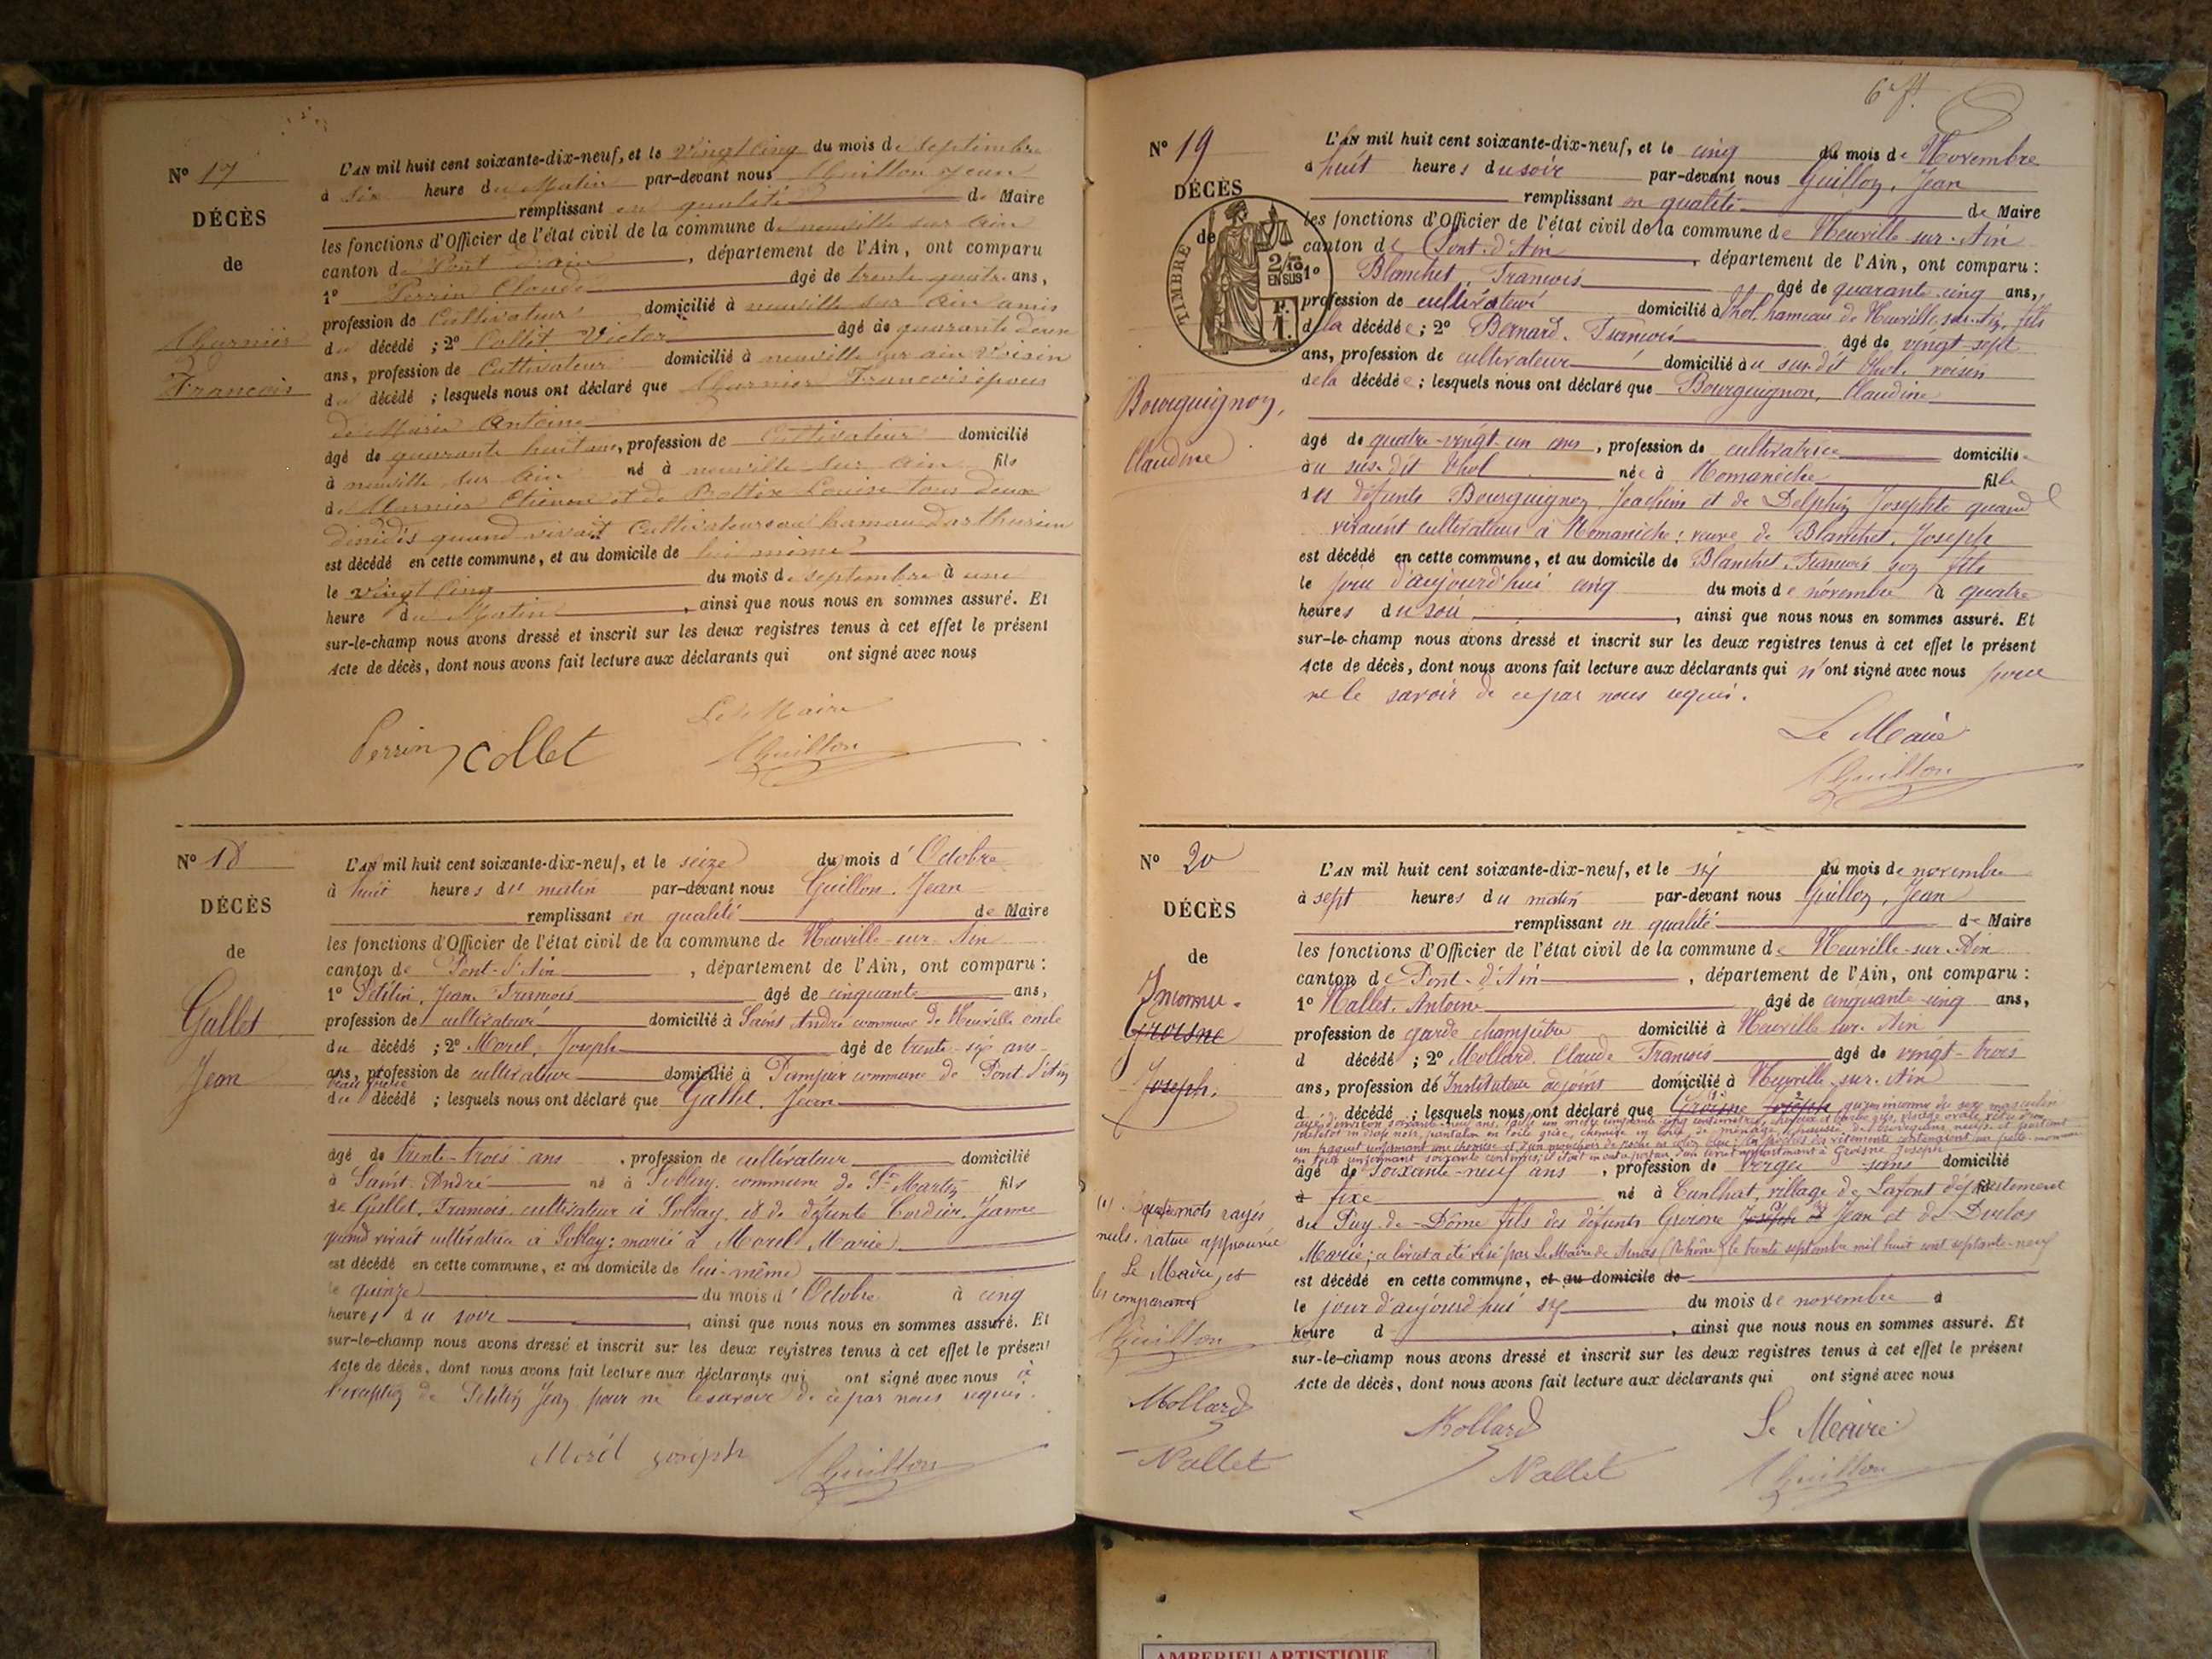 N° 17
DÉCÈS
de
Francois
L'AN mil huit cent soixante-dix-neuf, et le Vingt Cinq du mois de Septembre
à Six heure du Matin par-devant nous Guillon Jean
remplissant en qualité de Maire
les fonctions d'Officier de l'état civil de la commune de neuville sur ain
canton de Pont d'ain, département de l'Ain, ont comparu
1° Perrin Claude âgé de trente quatre ans,
profession de Cultivateur domicilié à neuville sur ain amis
du décédé ; 2° Collet Victor âgé de quarante deux
ans, profession de Cultivateur domicilié à neuville sur ain Voisin
du décédé ; lesquels nous ont déclaré que Francois époux
de Marie Antoine
âgé de quarante huit ans, profession de Cultivateur domicilié
à neuville sur ain né à neuville sur ain fils
de Etienne et de Louise tous deux
décidés quand vivait Cultivateurs au hameau
est décédé en cette commune, et au domicile de lui même
le vingt Cinq du mois de septembre à une
heure du Matin, ainsi que nous nous en sommes assuré. Et
sur-le-champ nous avons dressé et inscrit sur les deux registres tenus à cet effet le présent
Acte de décès, dont nous avons fait lecture aux déclarants qui ont signé avec nous
Perrin Collet
Le Maire
Guillon
N° 18
DÉCÈS
de
Gallet
Jean
L'AN mil huit cent soixante-dix-neuf, et le seize du mois d'Octobre
à huit heures du matin par-devant nous Guillon, Jean
remplissant en qualité de Maire
les fonctions d'Officier de l'état civil de la commune de Neuville-sur-Ain
canton de Pont-d'Ain, département de l'Ain, ont comparu :
1° Petitin, Jean François âgé de cinquante ans,
profession de cultivateur domicilié à Saint André commune de Neuville oncle
du décédé ; 2° Morel, Joseph âgé de trente-six ans
ans, profession de cultivateur domicilié à commune de Pont d'Ain
beau frère
du décédé ; lesquels nous ont déclaré que Gallet, Jean
âgé de trente-trois ans, profession de cultivateur domicilié
à Saint-André né à Soblay, commune de St Martin fils
de Gallet, François, cultivateur à Soblay, et de défunte Cordier, Jeanne
quand vivait cultivatrice à Soblay ; marié à Morel, Marie
est décédé en cette commune, et au domicile de lui-même
le quinze du mois d'Octobre à cinq
heures du soir, ainsi que nous nous en sommes assuré. Et
sur-le-champ nous avons dressé et inscrit sur les deux registres tenus à cet effet le présent
Acte de décès, dont nous avons fait lecture aux déclarants qui ont signé avec nous à
l'exception de Petitin Jean pour ne le savoir de ce par nous requis.
Morel joseph
Guillon
N° 19
DÉCÈS
de
TIMBRE
2/10
EN SUS
Bourguignon,
Claudine
L'AN mil huit cent soixante-dix-neuf, et le cinq du mois de Novembre
à huit heures du soir par-devant nous Guillon, Jean
remplissant en qualité de Maire
les fonctions d'Officier de l'état civil de la commune de Neuville-sur-Ain
canton de Pont-d'Ain, département de l'Ain, ont comparu :
1° Blanchet, François âgé de quarante cinq ans,
profession de cultivateur domicilié à Thol, hameau de Neuville-sur-Ain, fils
de la décédée ; 2° Bernard, François âgé de vingt-sept
ans, profession de cultivateur domicilié au sus-dit Thol, voisin
de la décédée ; lesquels nous ont déclaré que Bourguignon, Claudine
âgé de quatre-vingt-un ans, profession de cultivatrice domiciliée
au sus-dit Thol née à Romanèche fille
des défunts Bourguignon, Joachim et de Delphin Josephte quand
vivaient cultivateurs à Romanèche ; veuve de Blanchet, Joseph
est décédé en cette commune, et au domicile de Blanchet, François son fils
le jour d'aujourd'hui cinq du mois de novembre à quatre
heures du soir, ainsi que nous nous en sommes assuré. Et
sur-le-champ nous avons dressé et inscrit sur les deux registres tenus à cet effet le présent
Acte de décès, dont nous avons fait lecture aux déclarants qui n'ont signé avec nous pour
ne le savoir de ce par nous requis.
Le Maire
Guillon
N° 20
DÉCÈS
de
Inconnu.
Groisne
Joseph.
L'AN mil huit cent soixante-dix-neuf, et le six du mois de novembre
à sept heures du matin par-devant nous Guillon, Jean
remplissant en qualité de Maire
les fonctions d'Officier de l'état civil de la commune de Neuville-sur-Ain
canton de Pont-d'Ain, département de l'Ain, ont comparu :
1° Nallet, Antoine âgé de cinquante-cinq ans,
profession de garde champêtre domicilié à Neuville-sur-Ain
d décédé ; 2° Mollard, Claude François âgé de vingt-trois
ans, profession de Instituteur adjoint domicilié à Neuville-sur-Ain
d décédé ; lesquels nous ont déclaré que Groisne Joseph qu'un inconnu du sexe masculin
âgé d'environ soixante-neuf ans, taille un mètre cinquante cinq centimètres, cheveux et barbe gris, visage ovale, vêtu d'un
paletot en drap noir, pantalon en toile grise, chemise en toile de ménage, chaussé de brodequins neufs et portant
un paquet renfermant une chemise et d'un mouchoir de poche en coton bleu ; les poches des vêtements contenaient un porte-monnaie
renfermant soixante centimes, et était en outre porteur d'un livret appartenant à Groisne Joseph
âgé de Soixante-neuf ans, profession de berger sans domicilié
à fixe né à Cunlhat, village de Lafont département
du Puy-de-Dôme fils des défunts Groisne Joseph et Jean et de Duclos
Marie ; ce livret a été visé par Le Maire de Arnas (Rhône) le trente septembre mil huit cent septante-neuf
est décédé en cette commune, et au domicile de
le jour d'aujourd'hui six du mois de novembre à
heure d, ainsi que nous nous en sommes assuré. Et
sur-le-champ nous avons dressé et inscrit sur les deux registres tenus à cet effet le présent
Acte de décès, dont nous avons fait lecture aux déclarants qui ont signé avec nous
(1) Quatre mots rayés
nuls, rature approuvée
Le Maire, et
les comparants
Guillon
Mollard
Nallet
Mollard
Nallet
Le Maire
Guillon
AMBERIEU ARTISTIQUE